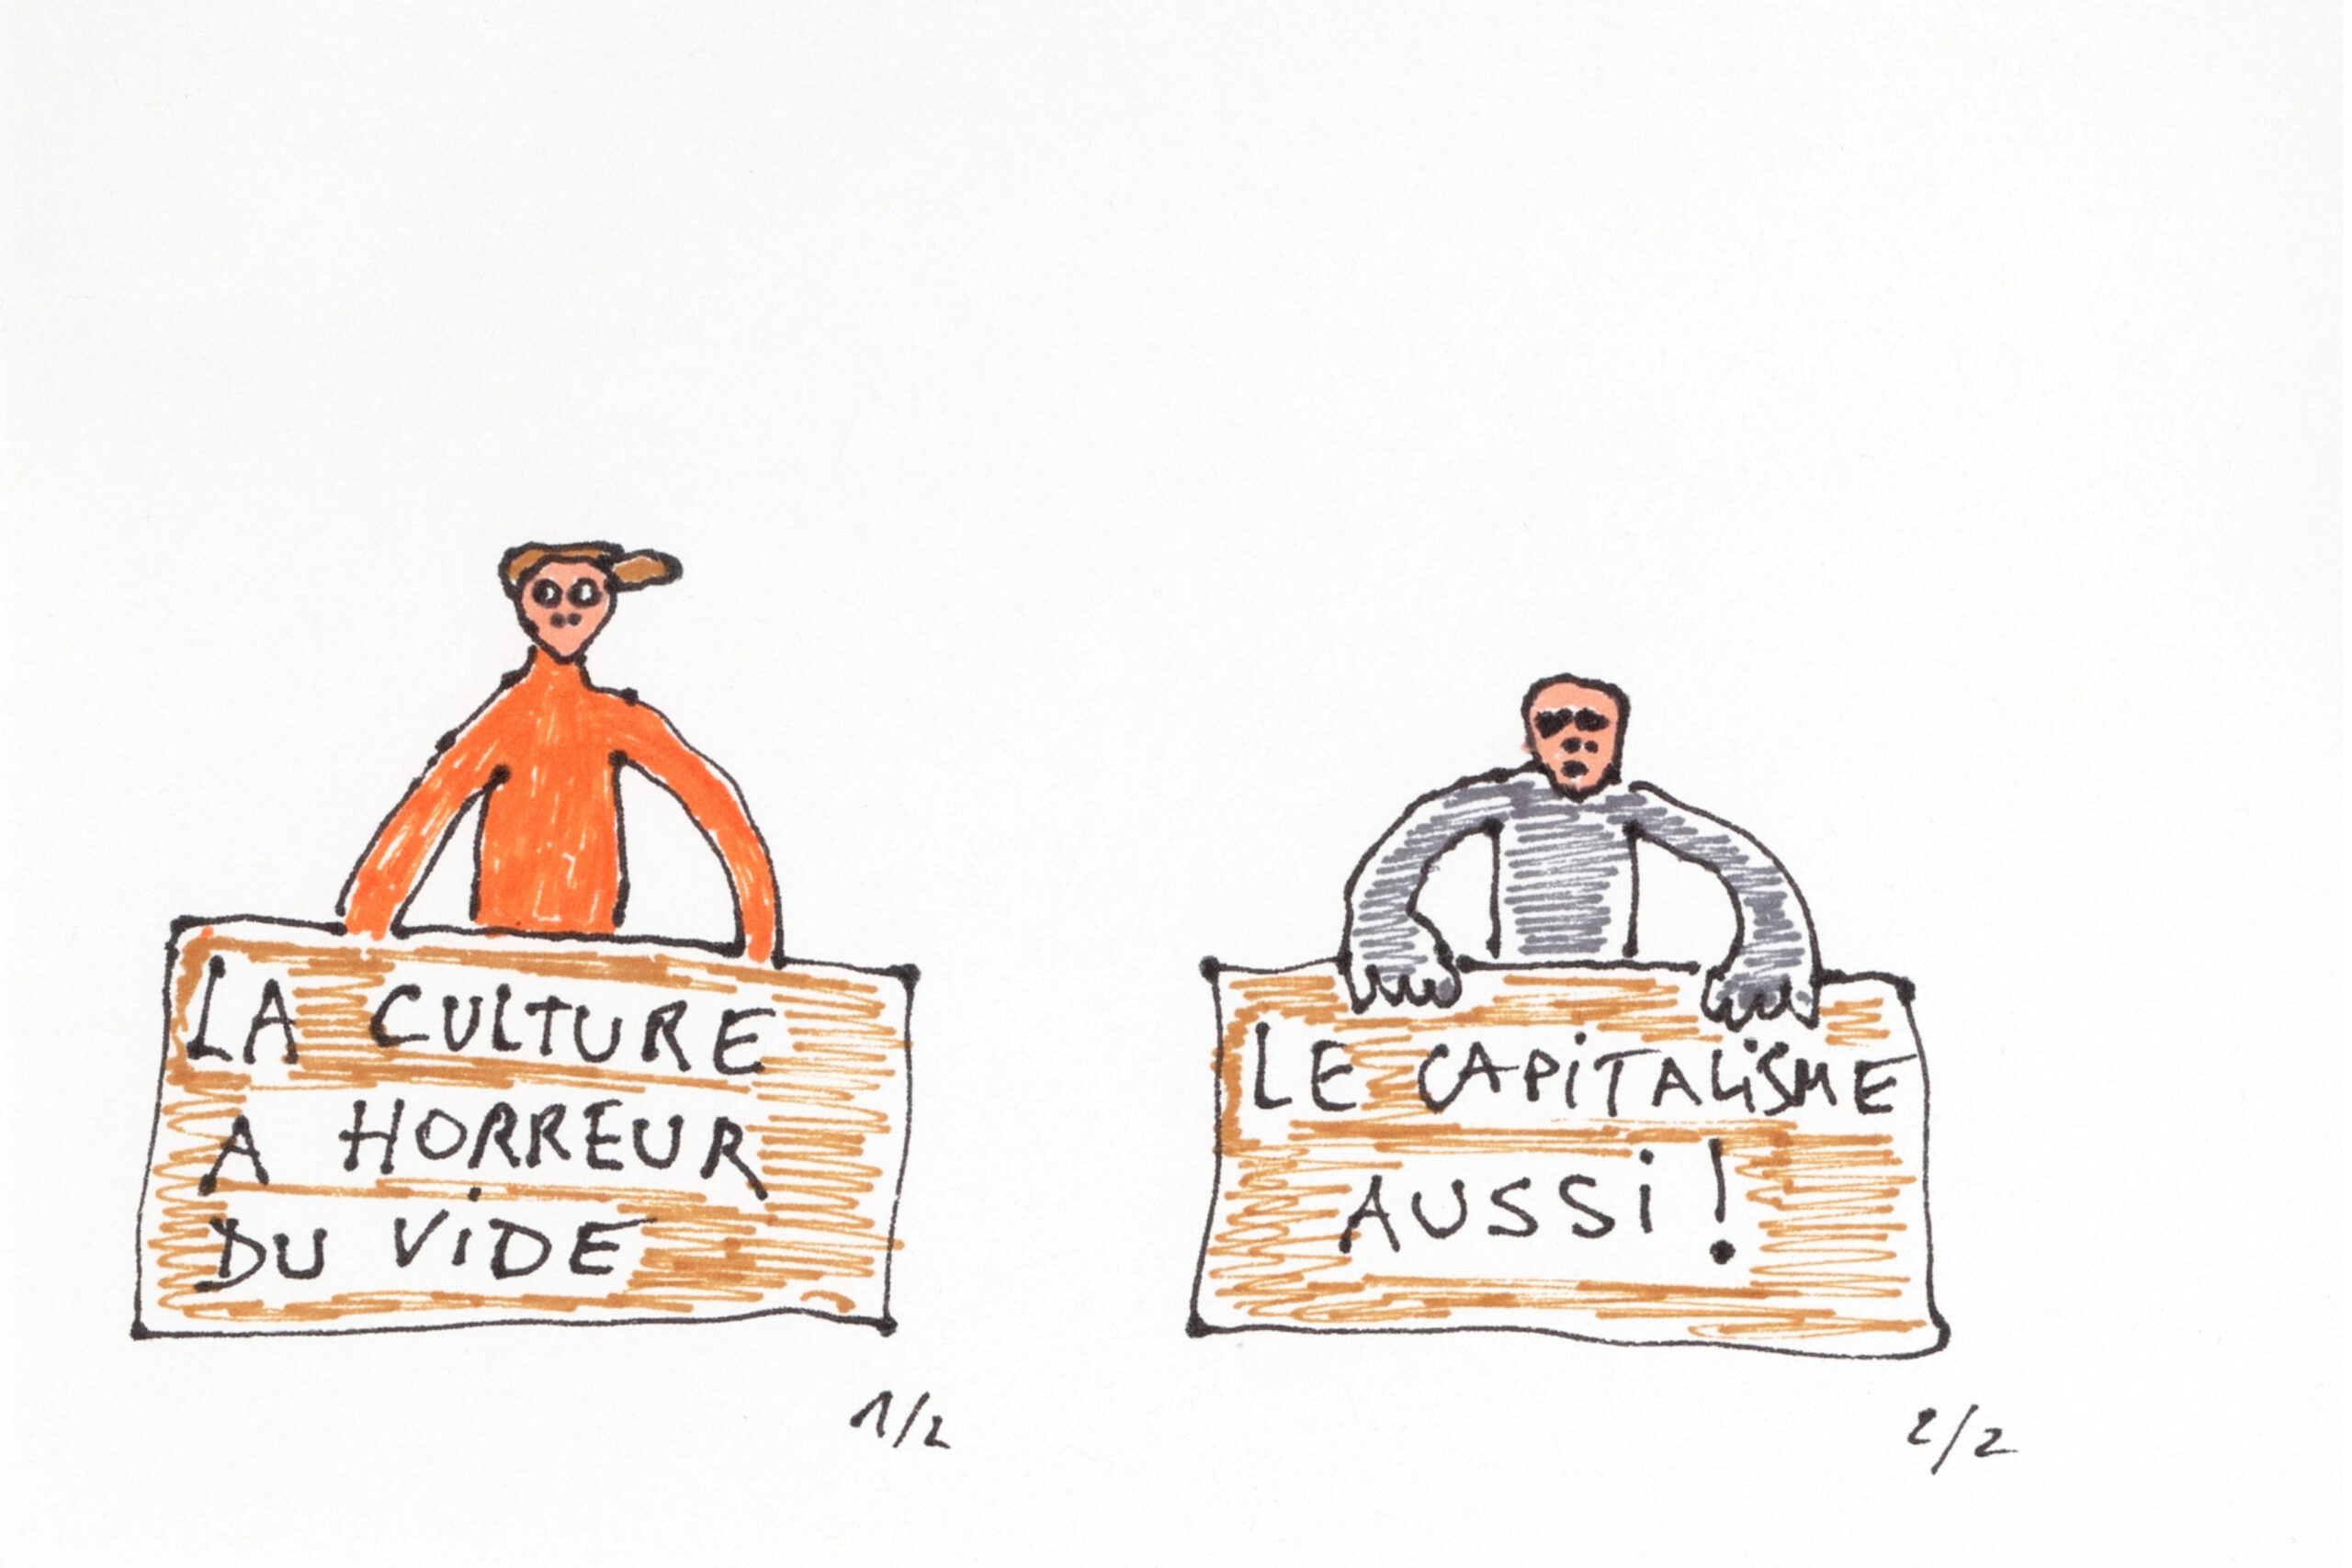 LA CULTURE
A HORREUR
DU ViDE
1/2
LE CAPiTALiSME
AUSSi !
2/2